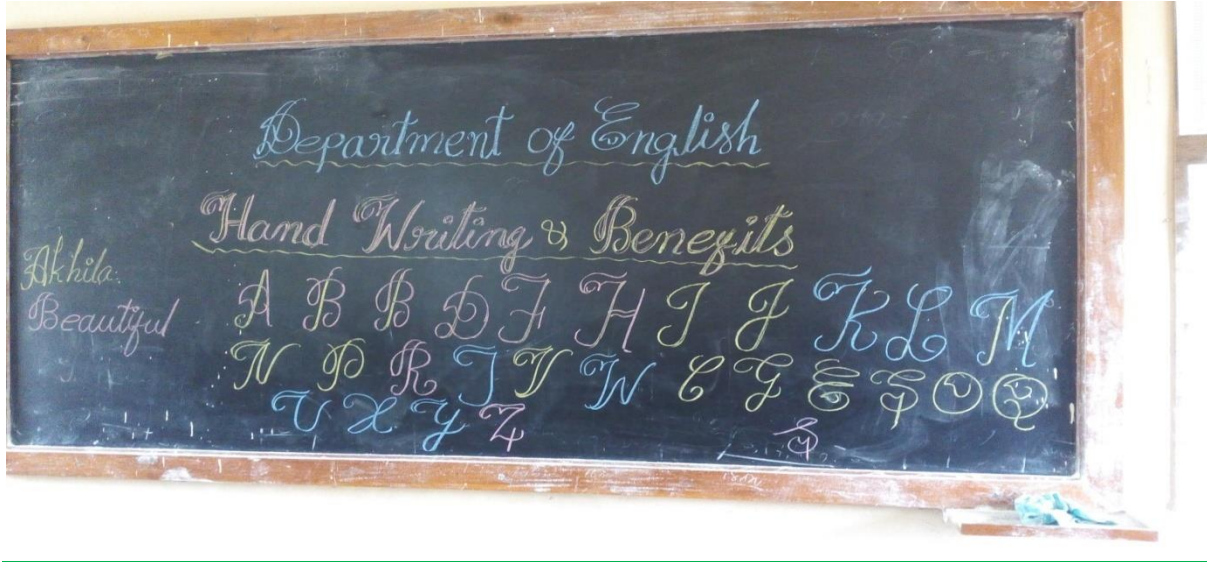 Department of English
Hand Writing & Benefits
Akhila
Beautiful
A B B D F H I J K L M
N P R T V W C G E S O Q
U X Y Z S